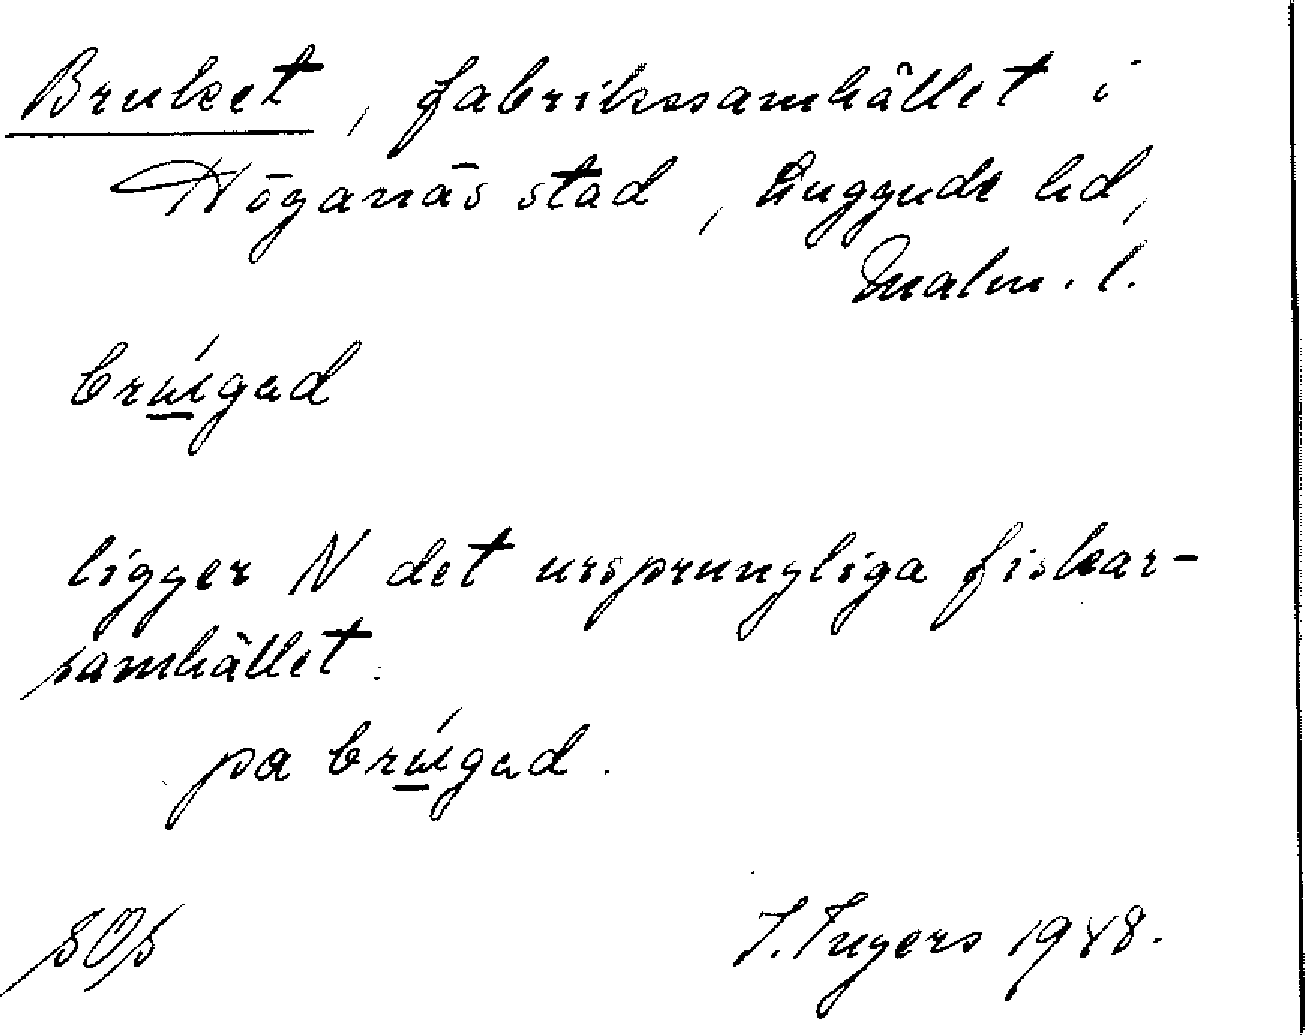 Bruket, fabrikssamhället i
Höganäs stad, Luggude hd,
Malm. l.
brúgad
ligger N det ursprungliga fiskar-
samhället.
pa brúgad.
SOS
I. Ingers 1948.